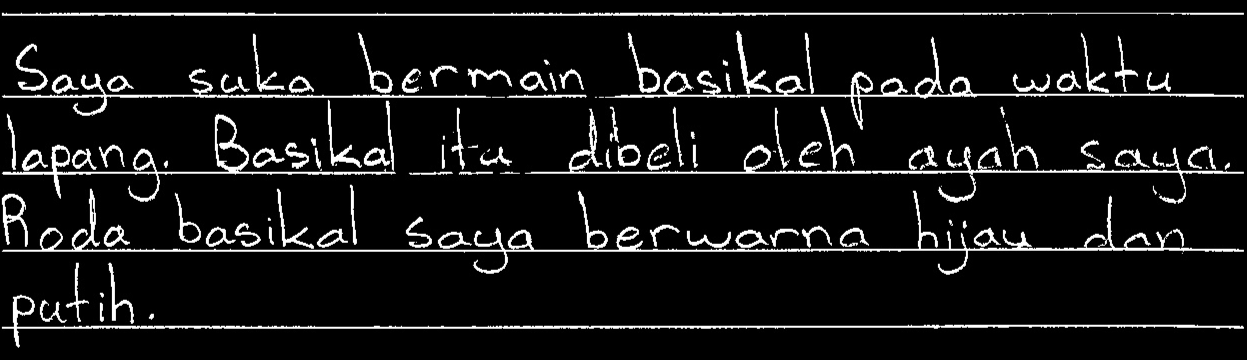 Saya suka bermain basikal pada waktu
lapang. Basikal itu dibeli oleh ayah saya.
Roda basikal saya berwarna hijau dan
putih.